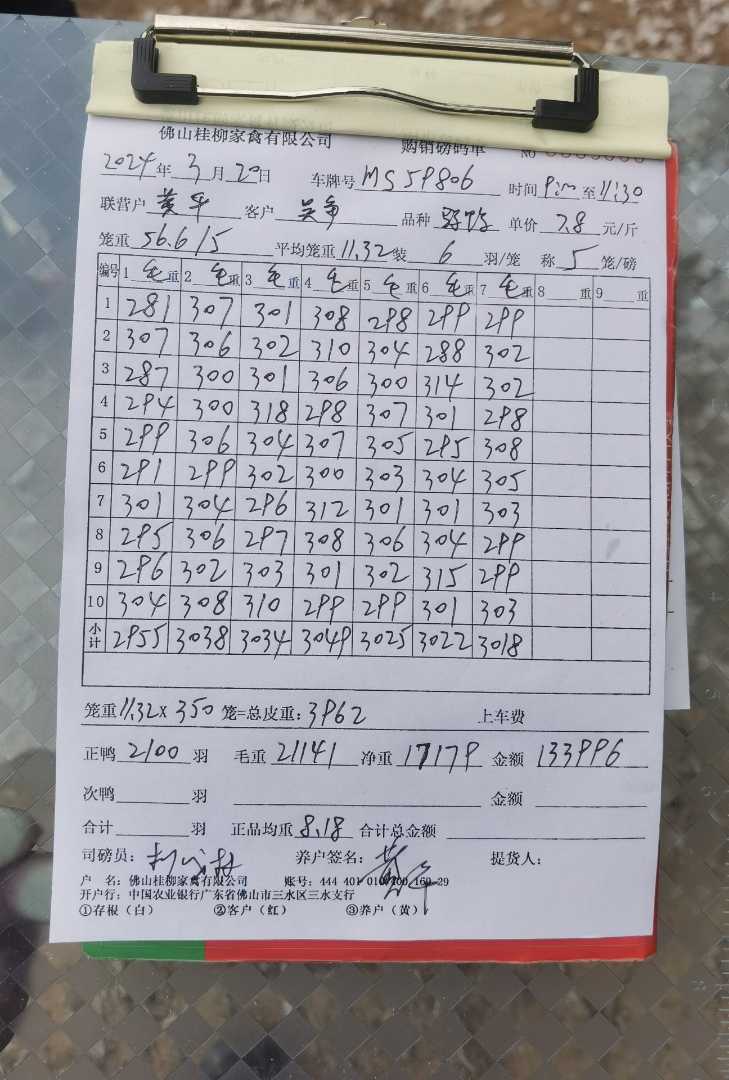 佛山桂柳家禽有限公司 购销磅码单 No
2024年3月20日 车牌号 MS59806 时间 至11:30
联营户 黄华 客户 品种 单价 7.8 元/斤
笼重 56.6/5 平均笼重 11.32 装 6 羽/笼 称 5 笼/磅
编号 1 毛重 2 毛重 3 毛重 4 毛重 5 毛重 6 毛重 7 毛重 8 重 9 重
1 281 307 301 308 298 299 299
2 307 306 302 310 304 288 302
3 287 300 301 306 300 314 302
4 294 300 318 298 307 301 298
5 299 306 304 307 305 295 308
6 291 299 302 300 303 304 305
7 301 304 296 312 301 301 303
8 295 306 297 308 306 304 299
9 296 302 303 301 302 315 299
10 304 308 310 299 299 301 303
小计 2955 3038 3034 3049 3025 3022 3018
笼重 11.32 x 350 笼=总皮重: 3962 上车费
正鸭 2100 羽 毛重 21141 净重 17179 金额 133996
次鸭 羽 金额
合计 羽 正品均重 8.18 合计总金额
司磅员: 养户签名: 提货人:
户 名: 佛山桂柳家禽有限公司 账号: 444 401 010 400 160 29
开户行: 中国农业银行广东省佛山市三水区三水支行
①存根（白） ②客户（红） ③养户（黄）